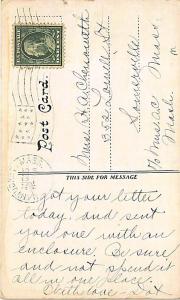 Post Card.
Miss H A Chenoweth
353 Lowell St
Somerville
Mass
THIS SIDE FOR MESSAGE
got your letter
today, and sent
you one with an
enclosure. Be sure
and not spend it
all in one place.
With love,